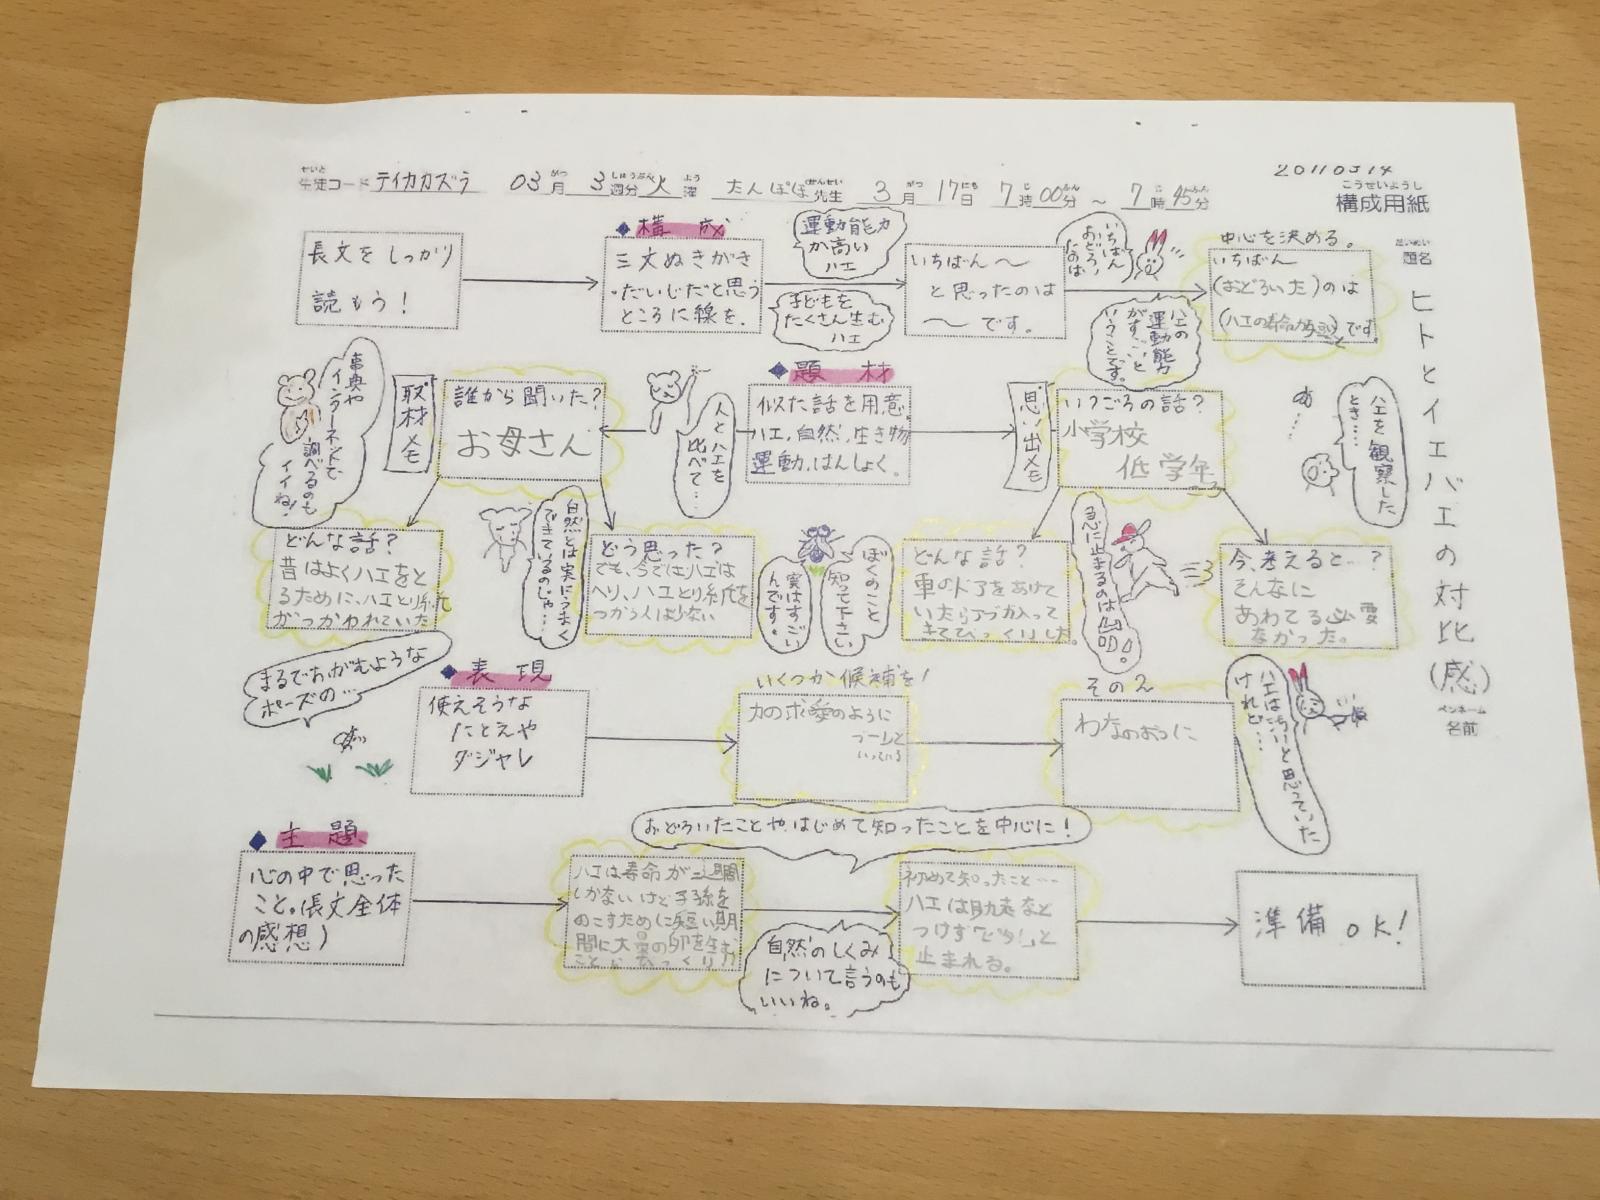 20110314
せいと
生徒コード テイカカズラ 03月 3週分 火曜 たんぽぽ先生 3月17日 7時00分 ～ 7時45分
こうせいようし
構成用紙
だいめい
題名
ヒトとイエバエの対比(感)
ペンネーム
名前
長文をしっかり
読もう！
◆構成
三文ぬきがき
・だいじだと思う
ところに線を.
運動能力
が高い
ハエ
子どもを
たくさん生む
ハエ
いちばん～
と思ったのは
～です。
いちばん
おどろい
たのは
ハエの
運動能力
がすごいと
いうことです。
中心を決める。
いちばん
(おどろいた)のは
(ハエの寿命が短い)とです
事典や
インターネットで
調べるのも
イイね！
取材メモ
誰から聞いた？
お母さん
人とハエを
比べて…
◆題材
似た話を用意
ハエ,自然,生き物
運動,はんしょく。
思い出メモ
いつごろの話？
小学校
低学年
ころ
ハエを観察した
とき……
どんな話？
昔はよくハエをと
るために、ハエとり紙
がつかわれていた
自然とは実にうまく
できているのじゃ…
どう思った？
でも、今ではハエは
へり、ハエとり紙を
つかう人は少ない
ぼくのこと
知って下さい
実はすごい
んです。
どんな話？
車のドアをあけて
いたらアブが入って
きてびっくりした。
急に止まるのは
今、考えると…？
そんなに
あわてる必要
なかった。
まるでおがむような
ポーズの…
◆表現
使えそうな
たとえや
ダジャレ
いくつか候補を！
力の求愛のように
その2
わなのように
ハエは汚いと思っていた
けれど…
おどろいたことや、はじめて知ったことを中心に！
◆主題
心の中で思った
こと。(長文全体
の感想)
ハエは寿命が三週間
しかないけど子孫を
のこすために短い期
間に大量の卵を生む
ことにびっくりり
自然のしくみ
について言うのも
いいね。
初めて知ったこと…
ハエは助走など
つけず「ピタ！」と
止まれる。
準備OK！